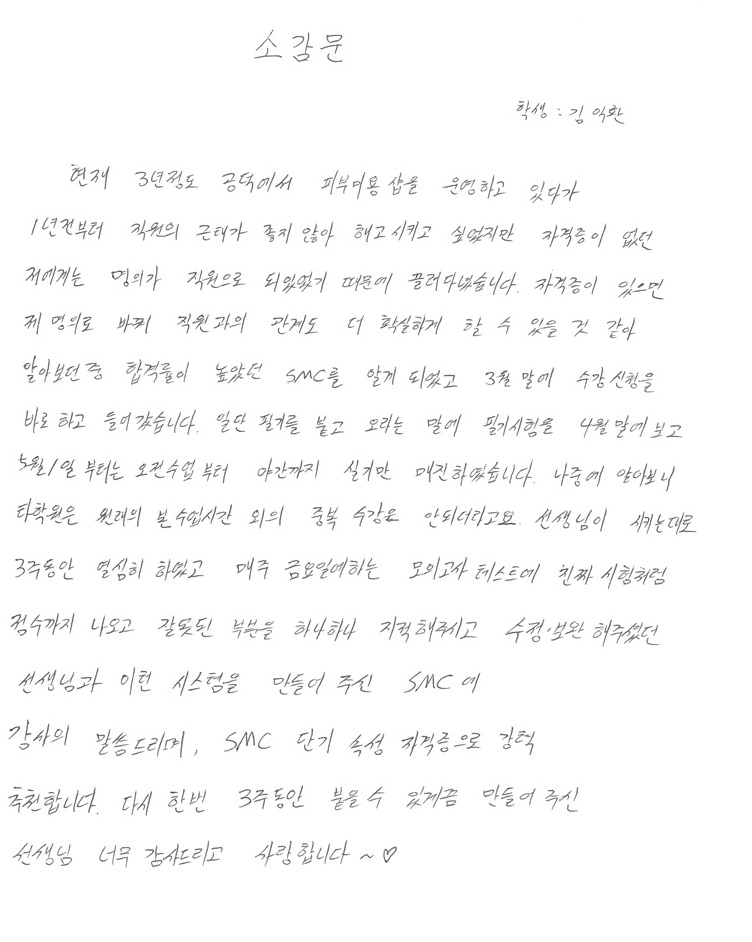 소감문
학생 : 김익환
현재 3년정도 공덕에서 피부미용 샵을 운영하고 있다가
1년전부터 직원의 근태가 좋지 않아 해고시키고 싶었지만 자격증이 없던
저에게는 명의가 직원으로 되있었기 때문에 끌려다녔습니다. 자격증이 있으면
제 명의로 바꿔 직원과의 관계도 더 확실하게 할 수 있을 것 같아
알아보던중 합격률이 높았던 SMC를 알게 되었고 3월 말에 수강신청을
바로 하고 들어갔습니다. 일단 필기를 붙고 오라는 말에 필기시험을 4월 말에 보고
5월1일 부터는 오전수업부터 야간까지 실기만 매진하였습니다. 나중에 알아보니
타학원은 원래의 본수업시간 외의 중복 수강은 안되더라고요. 선생님이 시키는대로
3주동안 열심히 하였고 매주 금요일에하는 모의고사 테스트에 진짜 시험처럼
점수까지 나오고 잘못된 부분을 하나하나 지적해주시고 수정·보완 해주셨던
선생님과 이런 시스템을 만들어 주신 SMC에
감사의 말씀드리며, SMC 단기 속성 자격증으로 강력
추천합니다. 다시 한번 3주동안 붙을 수 있게끔 만들어 주신
선생님 너무 감사드리고 사랑합니다 ~ ♡